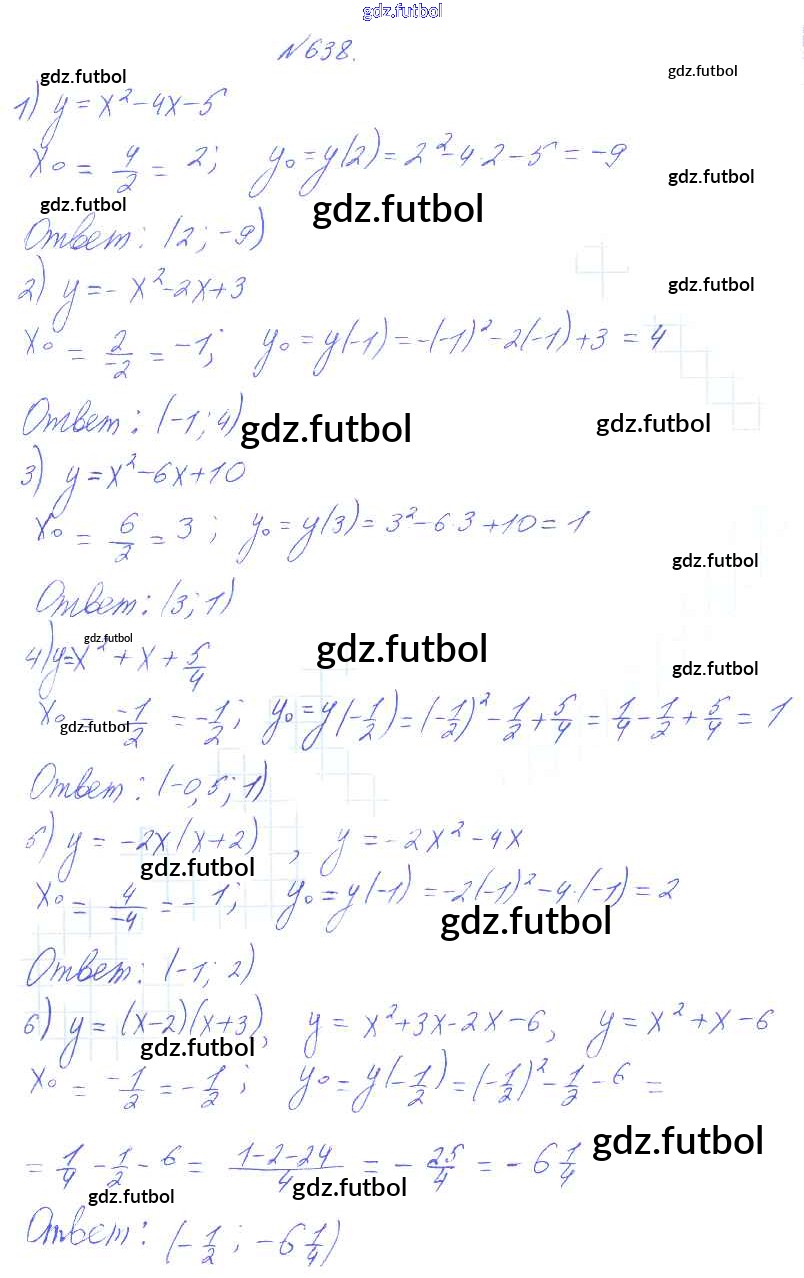 gdz.futbol
№638.
gdz.futbol gdz.futbol
1) y = x² - 4x - 5
x₀ = 4/2 = 2; y₀ = y(2) = 2² - 4·2 - 5 = -9
gdz.futbol
gdz.futbol gdz.futbol
Ответ: (2; -9)
2) y = -x² - 2x + 3
gdz.futbol
x₀ = 2/-2 = -1; y₀ = y(-1) = -(-1)² - 2(-1) + 3 = 4
Ответ: (-1; 4)
gdz.futbol gdz.futbol
3) y = x² - 6x + 10
x₀ = 6/2 = 3; y₀ = y(3) = 3² - 6·3 + 10 = 1
gdz.futbol
Ответ: (3; 1)
gdz.futbol gdz.futbol
4) y = x² + x + 5/4
gdz.futbol
x₀ = -1/2 = -1/2; y₀ = y(-1/2) = (-1/2)² - 1/2 + 5/4 = 1/4 - 1/2 + 5/4 = 1
gdz.futbol
Ответ: (-0,5; 1)
5) y = -2x(x+2), y = -2x² - 4x
gdz.futbol
x₀ = 4/-4 = -1; y₀ = y(-1) = -2(-1)² - 4·(-1) = 2
gdz.futbol
Ответ: (-1; 2)
6) y = (x-2)(x+3), y = x² + 3x - 2x - 6, y = x² + x - 6
gdz.futbol
x₀ = -1/2 = -1/2; y₀ = y(-1/2) = (-1/2)² - 1/2 - 6 =
gdz.futbol
= 1/4 - 1/2 - 6 = 1-2-24/4 = -25/4 = -6 1/4
gdz.futbol gdz.futbol
Ответ: (-1/2; -6 1/4)